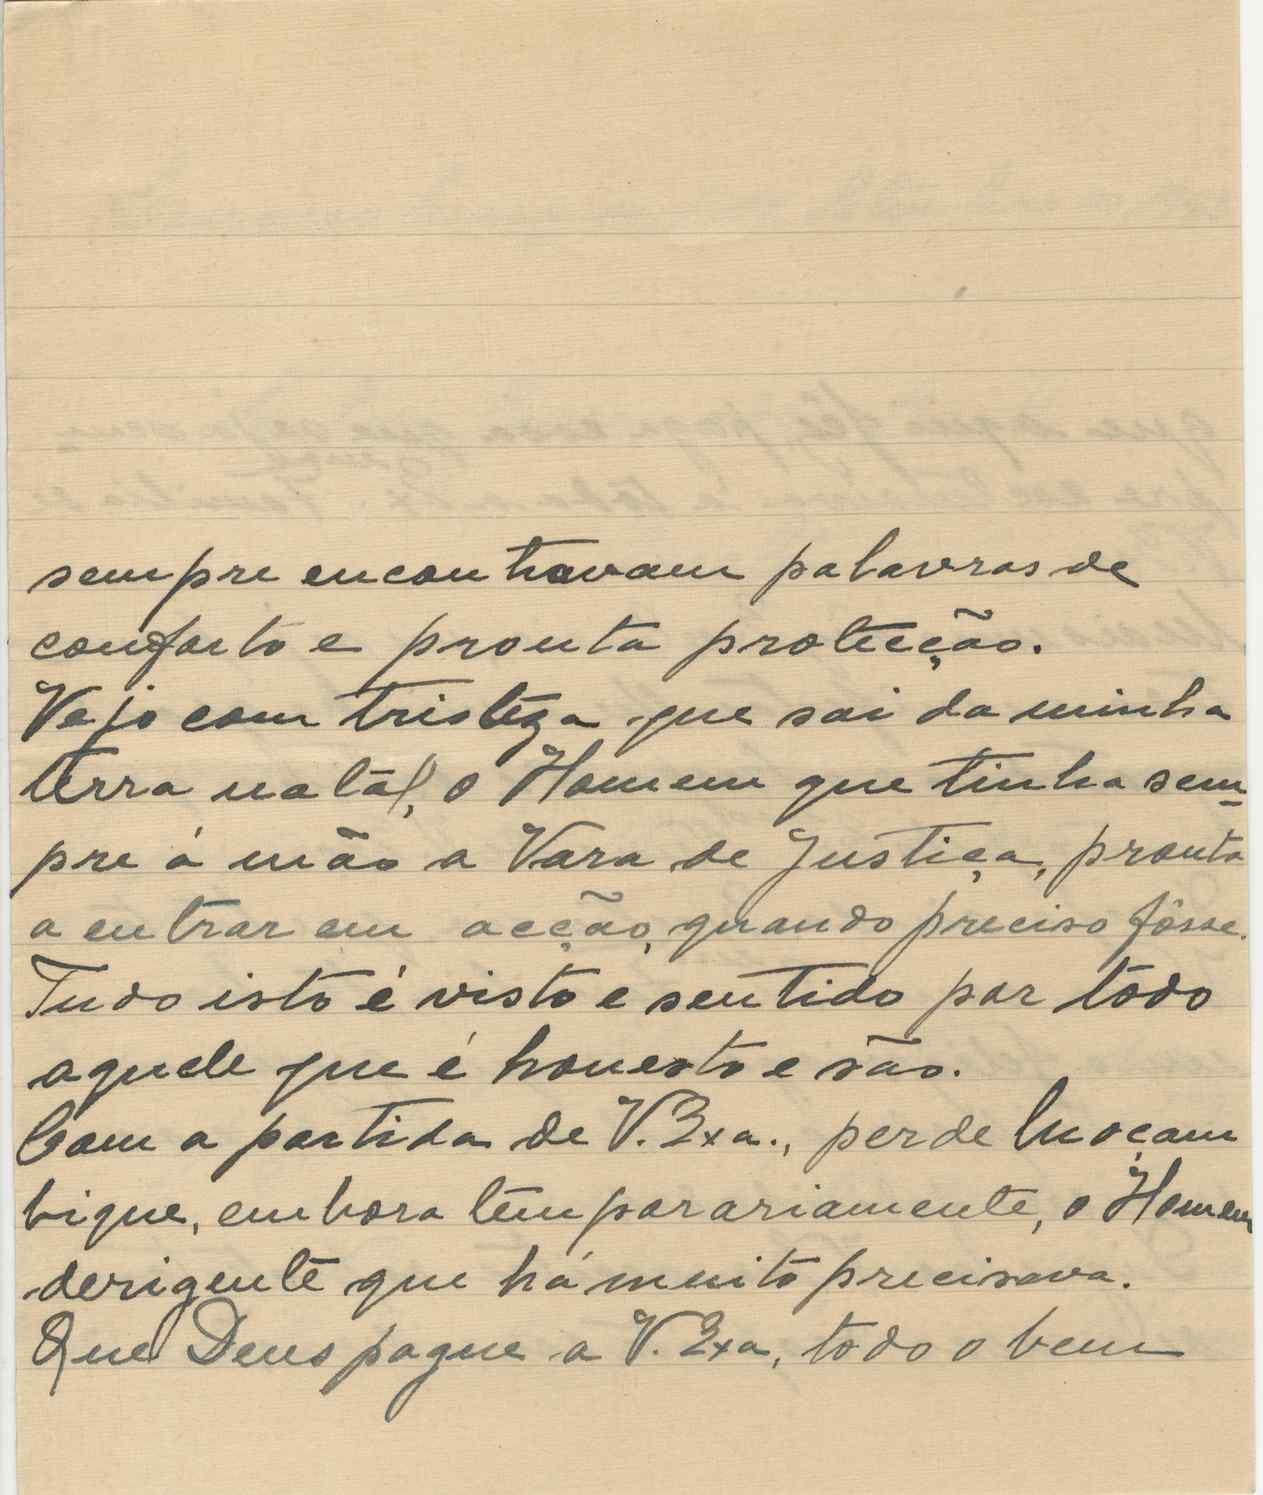 sempre encontravam palavras de
conforto e pronta protecção.
Vejo com tristêza que sai da minha
terra natal, o Homem que tinha sem-
pre á mão a Vara de Justiça, pronta
a entrar em acção, quando preciso fôsse.
Tudo isto é visto e sentido por todo
aquele que é honesto e são.
Com a partida de V. Exa., perde Moçam
bique, embora temporariamente, o Homem
derigente que há muito precisava.
Que Deus pague a V. Exa, todo o bem